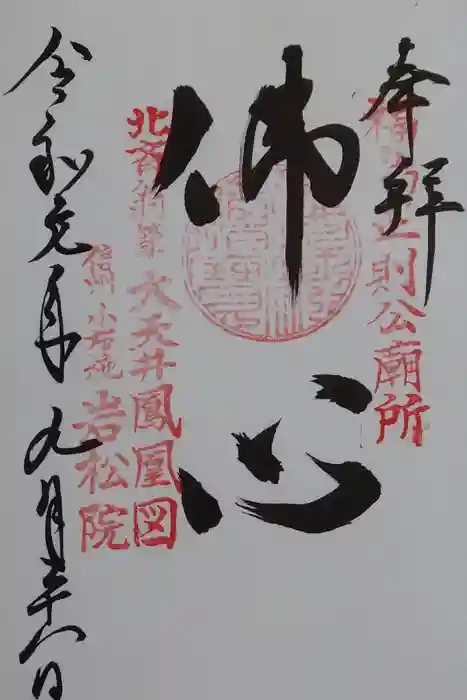 奉拝
福島正則公廟所
佛心
北斎翁筆 大天井鳳凰図
信州小布施 岩松院
令和元年九月二十八日